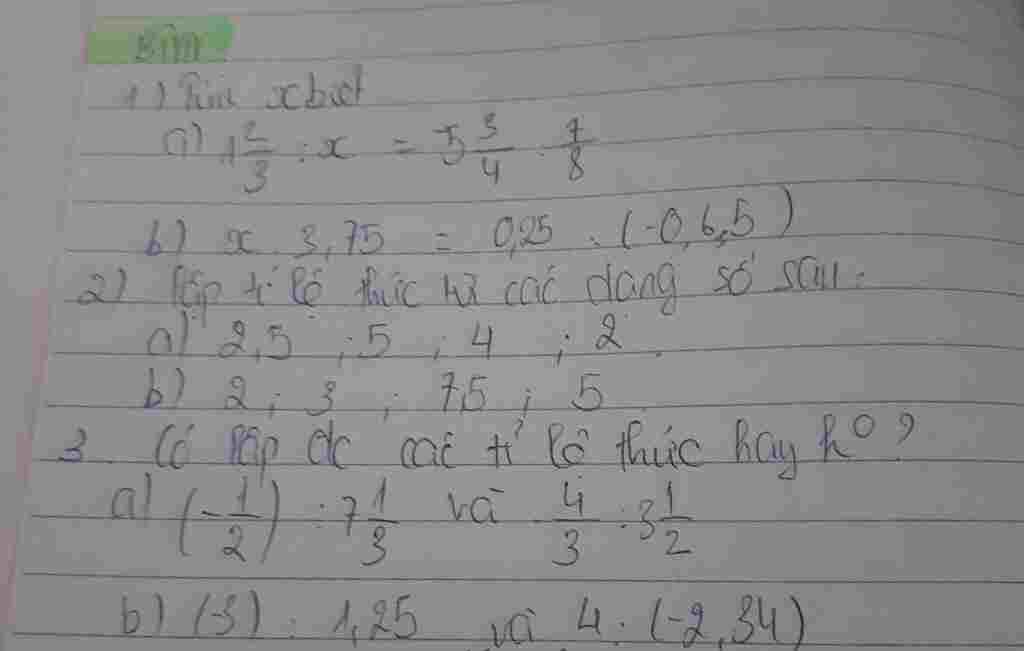 BTVN
1) Tìm x biết
a) 1 2/3 : x = 5 3/4 . 7/8
b) x . 3,75 = 0,25 . (-0,6,5)
2) lập tỉ lệ thức từ các dạng số sau:
a) 2,5 ; 5 ; 4 ; 2
b) 2 ; 3 ; 7,5 ; 5
3 Có lập đc các tỉ lệ thức hay ko?
a) (-1/2) : 7 1/3 và 4/3 : 3 1/2
b) (-3) : 1,25 và 4 : (-2,34)